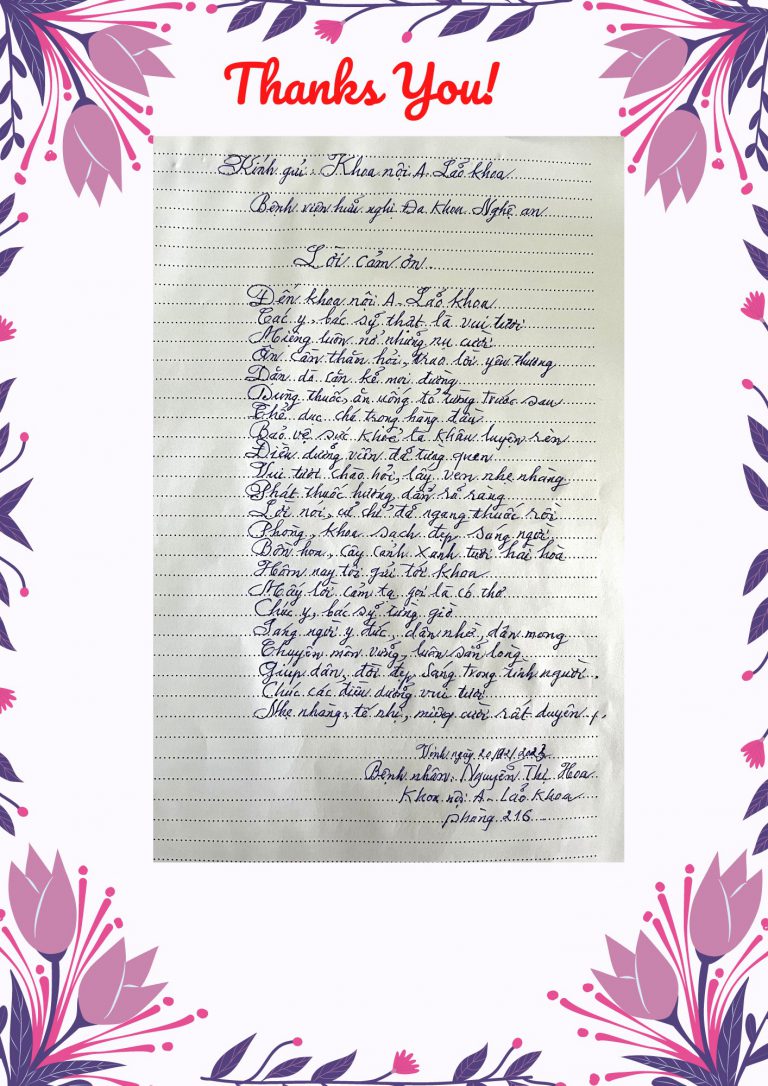 Thanks You!
Kính gửi, Khoa nội A-Lảo khoa
Bệnh viện hữu nghị Đa khoa Nghệ an
Lời cảm ơn
Đến khoa nội A-Lảo khoa
Các y, bác sỹ thật là vui tươi
Miệng luôn nở những nụ cười
Ân cần thăn hỏi, trao lời yêu thương
Dặn dò cặn kẻ mọi đường
Dùng thuốc, ăn uống tỏ tường trước sau
Thể dục chú trọng hàng đầu
Bảo vệ sức khoẻ ta khâu luyện rèn
Điều dưỡng viên đã từng quen
Vui tươi chào hỏi, lấy ven nhẹ nhàng
Phát thuốc hướng dẩn rỏ ràng
Lời nói, cử chỉ đã ngang thuốc rồi
Phòng, khoa sạch đẹp sáng ngời
Bồn hoa, cây cảnh xanh tươi hài hoà
Hôm nay tôi gửi tới khoa
Mấy lời cảm tạ gọi là có thơ
Chúc y, bác sỹ từng giờ
Sáng ngời y đức, dân nhờ, dân mong
Chuyên môn vững, luôn sẳn lòng
Giúp dân, đời đẹp sáng trong tình người.
Chúc các điều dưỡng vui tươi
Nhẹ nhàng, tế nhị, miệng cười rất duyên
Vinh ngày 20/12/2023
Bệnh nhân: Nguyễn Thị Hoa
Khoa nội A-Lảo khoa
phòng 216